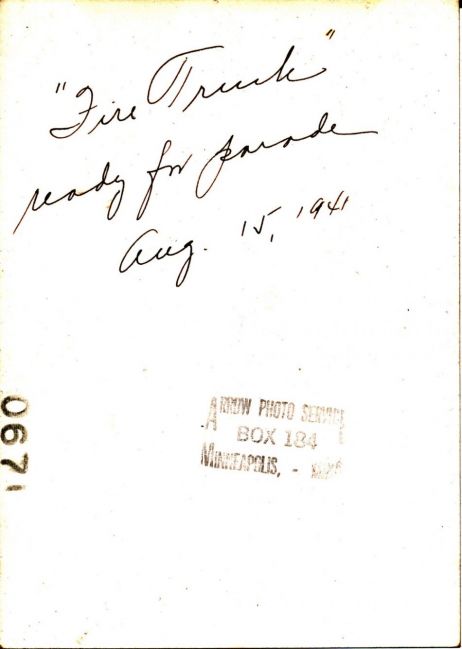 "Fire Truck"
ready for parade
Aug. 15, 1941
ARROW PHOTO SERVICE
BOX 184
MINNEAPOLIS, -
0671